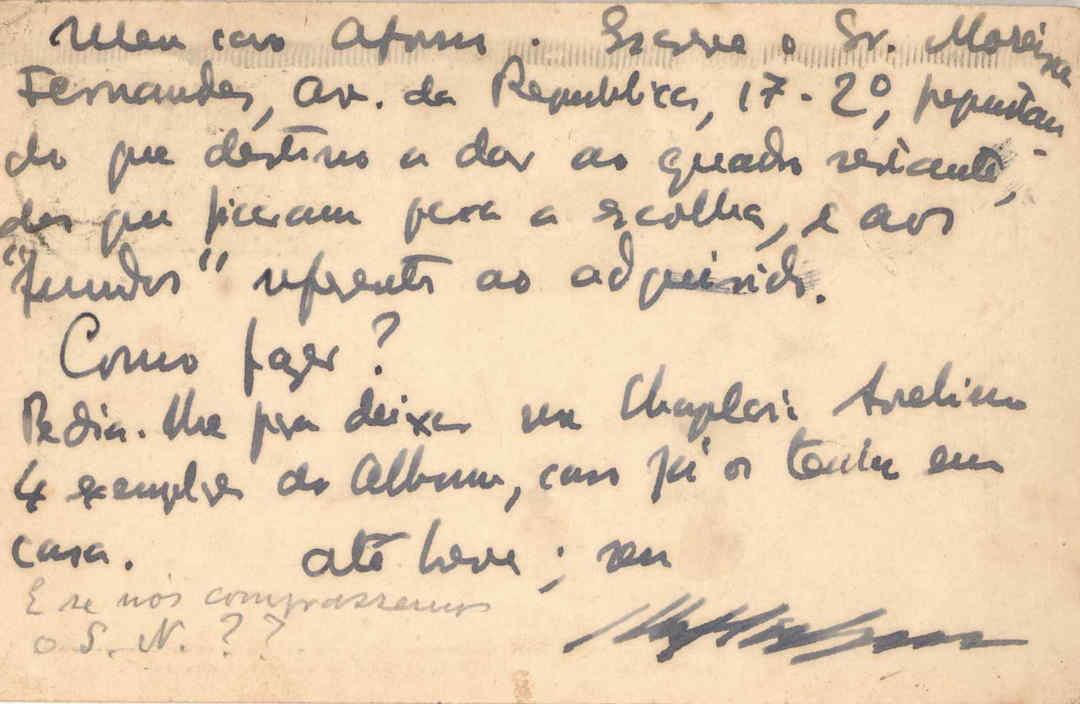 Meu caro Afonso. Escreve o Sr. Moreira
Fernandes, Av. da Republica, 17-2º, perguntan-
do que destino a dar ao quadro restante,
dos que ficaram para a escolha, e aos
"fundos" referente ao adquirido.
Como fazer?
Pedia-lhe pra deixar na Chapelaria
4 exemplares do Album, caso já os tenha em
casa. até breve; seu
E se nós comprassemos
o S. N. ??